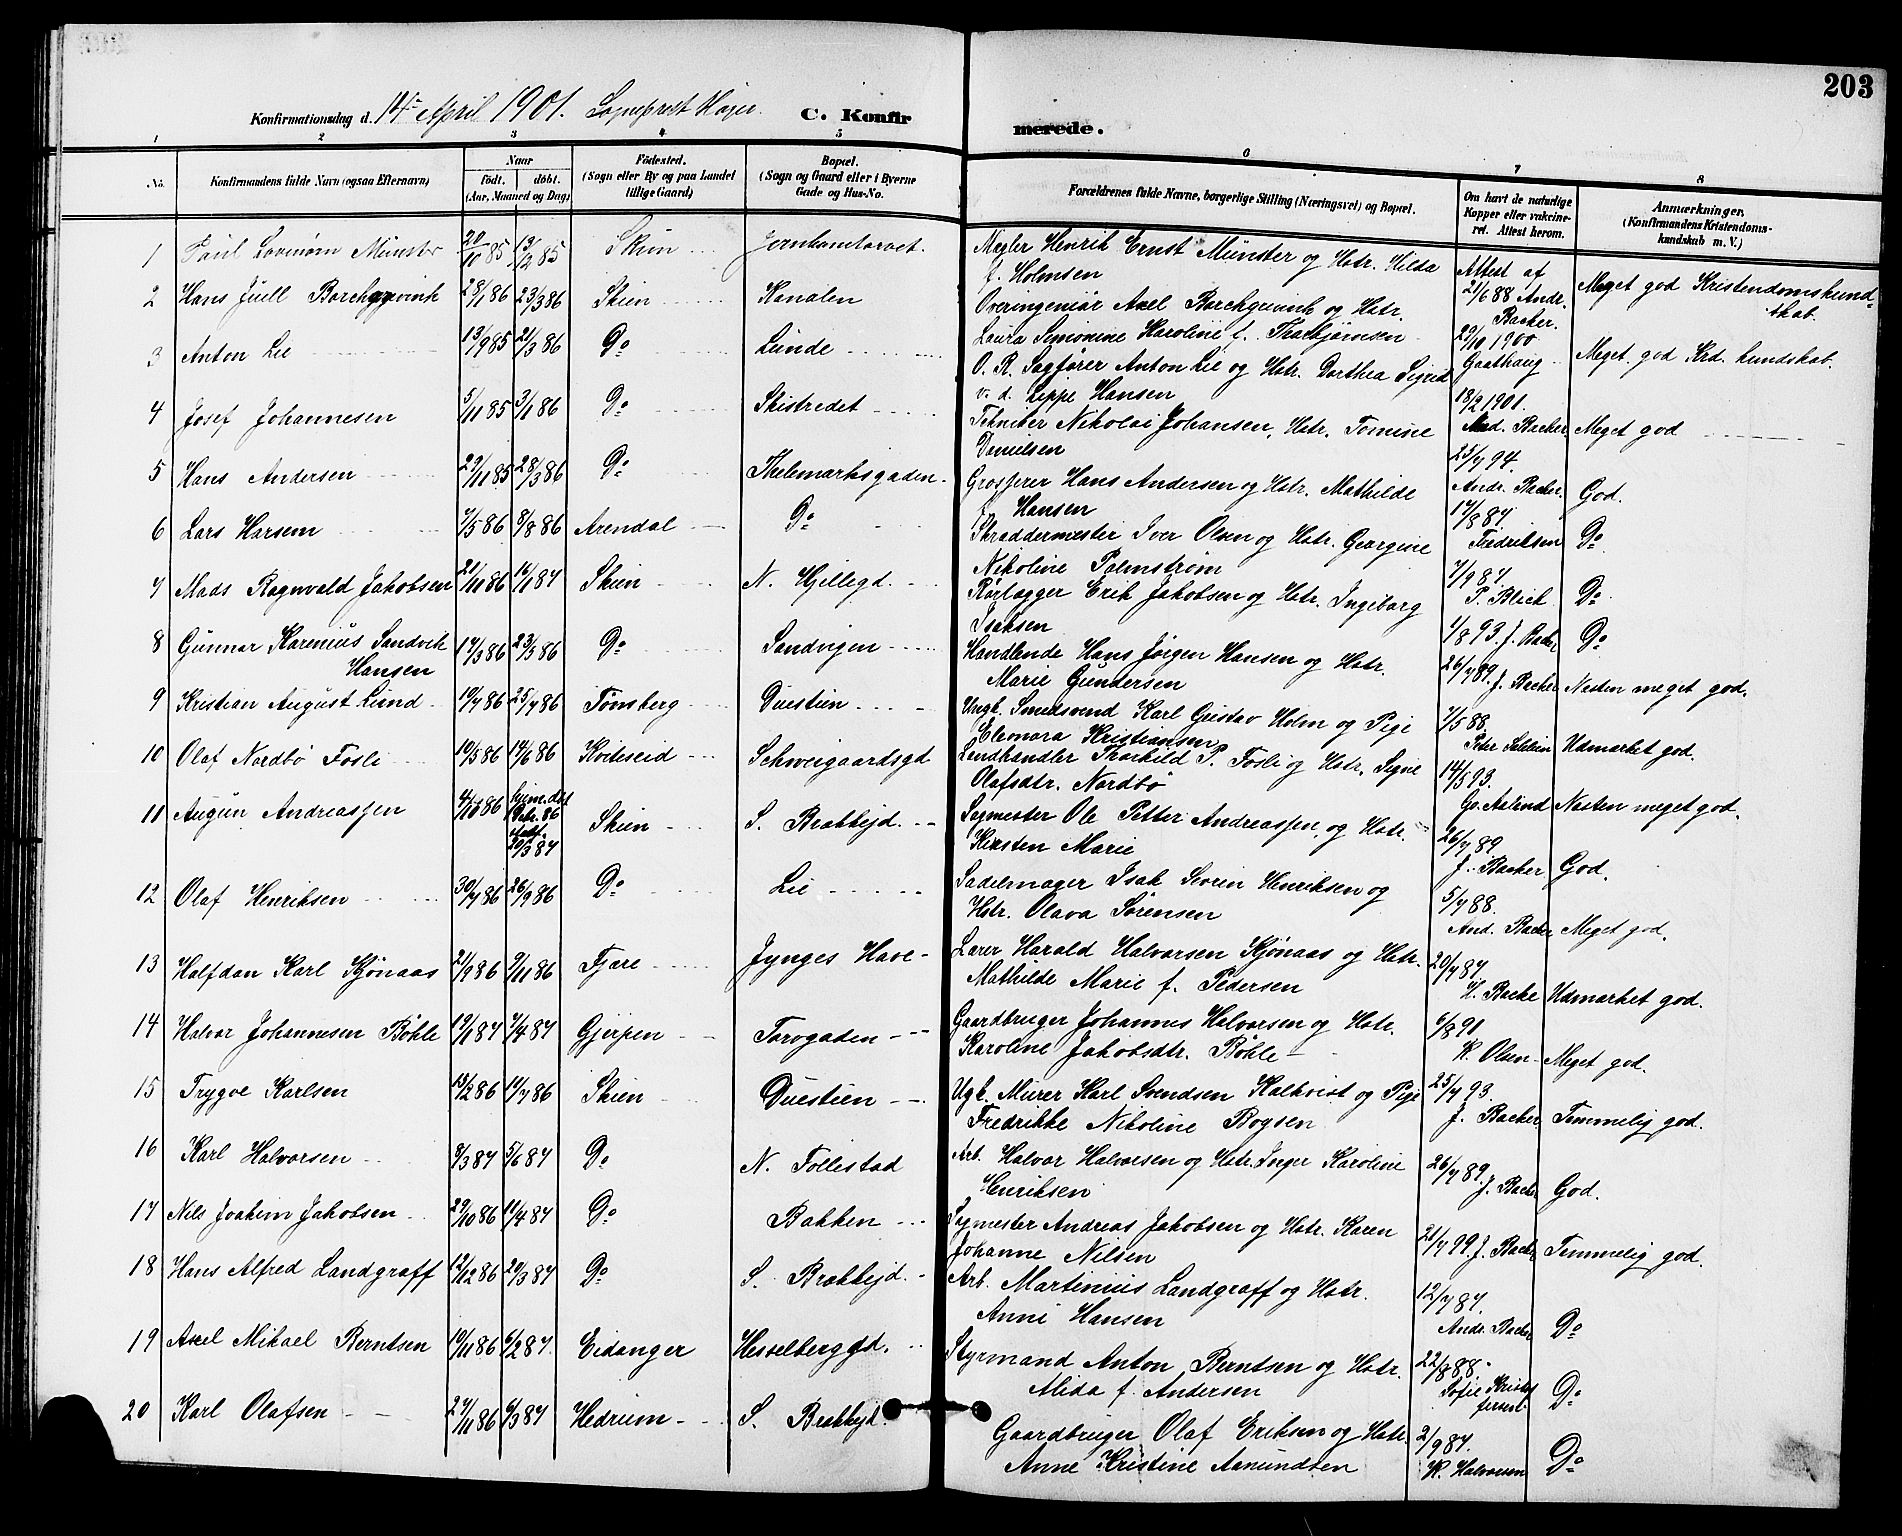 203
Konfirmationsdag d. 14de April 1901. Sogneprest Høyer. C. Konfirmerede.
1 2 3 4 5 6 7 8
No. Konfirmandens fulde Navn (ogsaa Efternavn) Naar født. døbt. (Aar, Maaned og Dag) Fødested. (Sogn eller By og paa Landet tillige Gaard) Bopæl. (Sogn og Gaard eller i Byerne Gade og Hus-No. Forældrenes fulde Navne, borgerlige Stilling (Næringsvei) og Bopæl. Om havt de naturlige Kopper eller vaksineret. Attest herom. Anmærkninger. (Konfirmandens Kristendomskundskab m. V.)
1 Paul Lovenørn Münster 20/10 85 13/12 85 Skien Jernbanetorvet. Megler Henrik Ernst Münster og Hstr. Hilda
f. Holmsen Attest af 21/6 88 Andr. Backer. Meget god Kristendomskundskab.
2 Hans Juell Borchgrevink 28/1 86 23/3 86 Skien Kanalen Overingeniør Axel Borchgrevink og Hstr.
Laura Semimine Karoline f. Thorbjørnsen 29/10 1900 Gaathaug Meget god Krd. kundskab.
3 Anton Lie 13/9 85 21/3 86 Do Lunde O. R. Sagfører Anton Lie og Hstr. Dorthea Sigrid
v. d. Lippe Hansen 18/2 1901. And. Backer
4 Josef Johannesen 5/11 85 3/1 86 Do Skistredet Tekniker Nikolai Johansen, Hstr. Tomine
Danielsen 25/7 94. Andr. Backer Meget god
5 Hans Andersen 29/11 85 28/3 86 Do Thelemarksgaden Grosserer Hans Andersen og Hstr. Mathilde
f. Hansen 17/8 87. Fredriksen God.
6 Lars Harsem 7/5 86 8/8 86 Arendal Do Skræddermester Iver Olsen og Hstr. Georgine
Nikoline Palmstrøm 7/9 87. P. Blich Do
7 Mads Ragnvald Jakobsen 21/11 86 16/1 87 Skien N. Hjellegd. Rørlægger Erik Jakobsen og Hstr. Ingeborg
Isaksen 1/8 93. J. Backer Do
8 Gunnar Karenius Sandvik
Hansen 17/3 86 23/5 86 Do Sandvigen Handlende Hans Jørgen Hansen og Hstr.
Marie Gundersen 26/7 89. J. Backer Do
9 Kristian August Lund 10/7 86 25/7 86 Tønsberg Duestien Ungk. Smedsvend Karl Gustav Holm og Pige
Eleonora Kristiansen 7/5 88 Næsten meget god.
10 Olaf Nordbø Fosli 10/5 86 14/6 86 Kviteseid Schweigaardsgd Landhandler Thorkild P. Fosli og Hstr. Signe
Olafsdtr. Nordbø 14/5 93. Go. Aslind Udmærket god.
11 Augun Andreassen 4/10 86 hjem.døbt 86 20/3 87 Skien S. Brækkejd. Sagmester Ole Petter Andreassen og Hstr.
Kirsten Marie 26/7 89 J. Backer Næsten meget god.
12 Olaf Henriksen 30/7 86 26/9 86 Do Lie Sadelmager Isak Severin Henriksen og
Hstr. Olava Sørensen 5/7 88. And. Backer God.
13 Halfdan Karl Kjønaas 21/9 86 9/11 86 Fjære Jynges Have Lærer Harald Halvorsen Kjønaas og Hstr.
Mathilde Marie f. Pedersen 20/7 87. H. Backe Meget god.
14 Halvor Johannesen Bøhle 19/1 87 7/4 87 Gjerpen Torvgaden Gaardbruger Johannes Halvorsen og Hstr.
Karoline Jakobsdtr. Bøhle 6/8 91 K. Olsen Udmærket god.
15 Trygve Karlsen 13/2 86 11/7 86 Skien Duestien Ugk. Murer Karl Svendsen Kalkvist og Pige
Fredrikke Nikoline Bogsen 25/7 93. J. Backer Meget god.
16 Karl Halvorsen 9/3 87 5/6 87 Do N. Follestad Arb. Halvor Halvorsen og Hstr. Inger Karoline
Henriksen 26/7 89. J. Backer Temmelig god.
17 Nils Joakim Jakobsen 29/10 86 11/4 87 Do Bakken Sagmester Andreas Jakobsen og Hstr. Karen
Johanne Nilsen 21/7 99 J. Backer God.
18 Hans Alfred Landgraff 12/12 86 20/3 87 Do S. Brækkejd. Arb. Martinius Landgraff og Hstr.
Anne Hansen 12/7 87. Andr. Backer Temmelig god.
19 Axel Mikael Berntsen 10/11 86 6/2 87. Eidanger Hesselberggd. Styrmand Anton Berntsen og Hstr.
Alida f. Andersen 22/8 88. Sofie Do
20 Karl Olafsen 27/11 86 6/3 87 Hedrum S. Brækkejd. Gaardbruger Olaf Eriksen og Hstr.
Anne Kristine Aamundsen 2/9 87. K. Halvorsen Do
Do